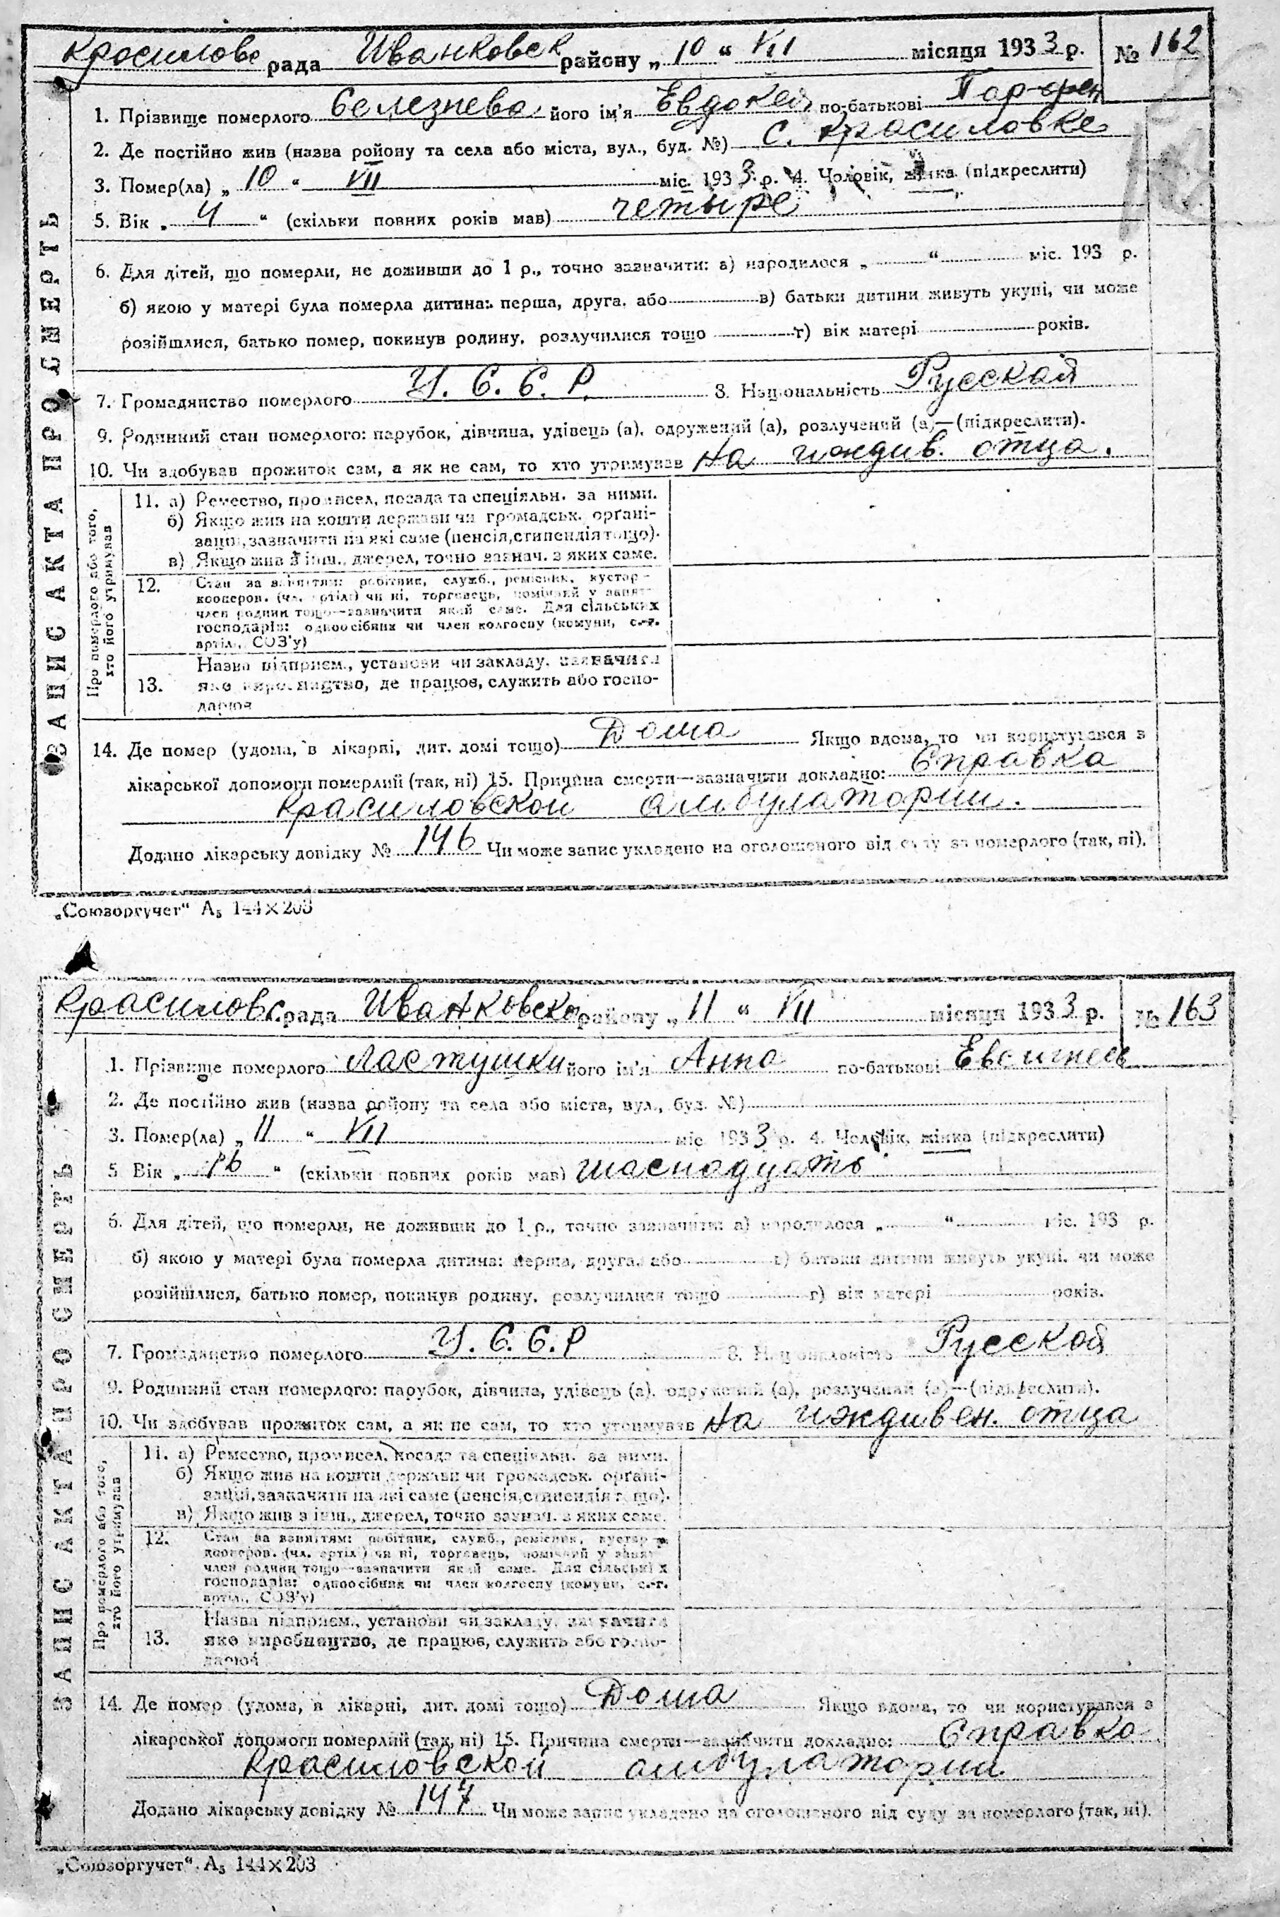 Красилове рада Иванковск району „ 10 “ VII місяця 1933 р. № 162
1. Прізвище померлого Селезнева його ім'я Евдокея по-батькові Парфен
2. Де постійно жив (назва району та села або міста, вул., буд. №) С. Красиловке
3. Помер(ла) „ 10 “ VII міс. 1933 р. 4. Чоловік, жінка (підкреслити)
5. Вік „ 4 “ (скільки повних років мав) четыре
6. Для дітей, що померли, не доживши до 1 р., точно зазначити: а) народилося „ “ міс. 193 р.
б) якою у матері була померла дитина: перша, друга, або в) батьки дитини живуть укупі, чи може
розійшлися, батько помер, покинув родину, розлучилися тощо г) вік матері років.
7. Громадянство померлого У. С. С. Р. 8. Національність Русской
9. Родинний стан померлого: парубок, дівчина, удівець (а), одружений (а), розлучений (а)—(підкреслити).
10. Чи здобував прожиток сам, а як не сам, то хто утримував На иждив. отца.
ЗАПИС АКТА ПРО СМЕРТЬ
Про померлого або того, хто його утримував
11. а) Ремество, промисел, посада та спеціяльн. за ними.
б) Якщо жив на кошти держави чи громадськ. орґані-
зації, зазначити на які саме (пенсія, стипендія тощо).
в) Якщо жив з інш., джерел, точно зазнач. з яких саме.
12. Стан за заняттям: робітник, служб., ремісник, кустар-
кооперов. (чл. артілі) чи ні, торговець, помічний у занят
член родини тощо—зазначити який саме. Для сільських
господарів: одноосібник чи член колгоспу (комуни, с.-г.
артіл., СОЗ'у)
Назва підприєм., установи чи закладу, зазначити
13. яке виробництво, де працює, служить або госпо-
дарює
14. Де помер (удома, в лікарні, дит. домі тощо) Дома Якщо вдома, то чи користувався з
лікарської допомоги померлий (так, ні) 15. Причина смерти—зазначити докладно: Справка
Красиловской амбулатории.
Додано лікарську довідку № 146 Чи може запис укладено на оголошеного від суду за померлого (так, ні).
„Союзоргучет“ А₅ 144×203
Красиловс. рада Иванковско району „ 11 “ VII місяця 1933 р. № 163
1. Прізвище померлого Ластушки його ім'я Анна по-батькові
2. Де постійно жив (назва району та села або міста, вул., буд. №)
3. Помер(ла) „ 11 “ VII міс. 1933 р. 4. Чоловік, жінка (підкреслити)
5 Вік „ 16 “ (скільки повних років мав) шаснадцать
6. Для дітей, що померли, не доживши до 1 р., точно зазначити: а) народилося „ “ міс. 193 р.
б) якою у матері була померла дитина: перша, друга, або в) батьки дитини живуть укупі, чи може
розійшлися, батько помер, покинув родину, розлучилися тощо г) вік матері років.
7. Громадянство померлого У. С. С. Р 8. Національність Русской
9. Родинний стан померлого: парубок, дівчина, удівець (а), одружений (а), розлучений (а)—(підкреслити).
10. Чи здобував прожиток сам, а як не сам, то хто утримував На иждивен. отца
ЗАПИС АКТА ПРО СМЕРТЬ
Про померлого або того, хто його утримував
11. а) Ремество, промисел, посада та спеціяльн. за ними.
б) Якщо жив на кошти держави чи громадськ. орґані-
зації, зазначити на які саме (пенсія, стипендія тощо).
в) Якщо жив з інш., джерел, точно зазнач. з яких саме.
12. Стан за заняттям: робітник, служб., ремісник, кустар
кооперов. (чл. артілі) чи ні, торговець, помічний у занят
член родини тощо—зазначити який саме. Для сільських
господарів: одноосібник чи член колгоспу (комуни, с.-г.
артіл., СОЗ'у)
Назва підприєм., установи чи закладу, зазначити
13. яке виробництво, де працює, служить або госпо-
дарює
14. Де помер (удома, в лікарні, дит. домі тощо) Дома Якщо вдома, то чи користувався з
лікарської допомоги померлий (так, ні) 15. Причина смерти—зазначити докладно: Справка
Красиловской амбулатории
Додано лікарську довідку № 147 Чи може запис укладено на оголошеного від суду за померлого (так, ні).
„Союзоргучет“. А₅ 144×203